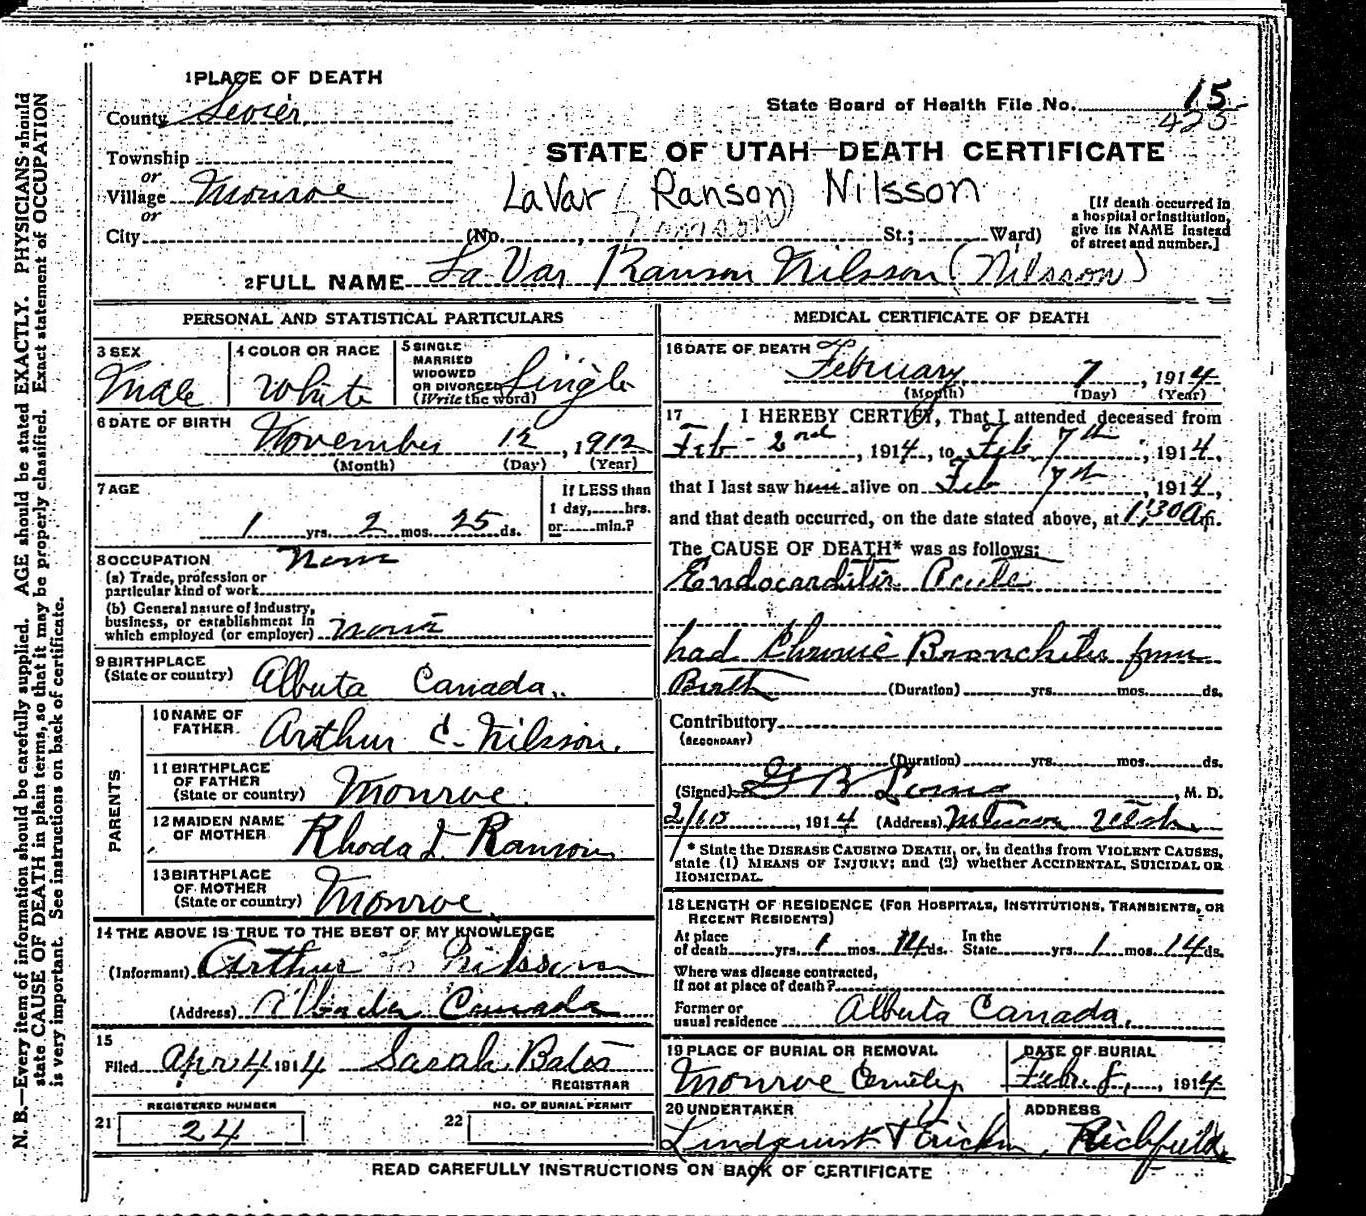 1 PLACE OF DEATH
County Sevier
State Board of Health File No. 15
425
Township
or
Village Monroe
or
City (No. , St.; Ward)
STATE OF UTAH—DEATH CERTIFICATE
LaVar (Ranson) Nilsson
[If death occurred in
a hospital or institution,
give its NAME instead
of street and number.]
2 FULL NAME La Var Ranson Nilsson (Nilsson)
PERSONAL AND STATISTICAL PARTICULARS
3 SEX
Male
4 COLOR OR RACE
White
5 SINGLE
MARRIED
WIDOWED
OR DIVORCED
(Write the word)
Single
6 DATE OF BIRTH
November 12, 1912
(Month) (Day) (Year)
7 AGE
1 yrs. 2 mos. 25 ds.
If LESS than
1 day, hrs.
or min.?
8 OCCUPATION None
(a) Trade, profession or
particular kind of work
(b) General nature of industry,
business, or establishment in
which employed (or employer) none
9 BIRTHPLACE
(State or country) Alberta Canada.
PARENTS
10 NAME OF
FATHER Arthur C. Nilsson.
11 BIRTHPLACE
OF FATHER
(State or country) Monroe.
12 MAIDEN NAME
OF MOTHER Rhoda I. Ranson
13 BIRTHPLACE
OF MOTHER
(State or country) Monroe.
14 THE ABOVE IS TRUE TO THE BEST OF MY KNOWLEDGE
(Informant) Arthur C Nilsson
(Address) Alberta Canada
15
Filed Apr 4 1914 Sarah Bates
REGISTRAR
21 REGISTERED NUMBER
24
22 NO. OF BURIAL PERMIT
MEDICAL CERTIFICATE OF DEATH
16 DATE OF DEATH
February 7, 1914
(Month) (Day) (Year)
17 I HEREBY CERTIFY, That I attended deceased from
Feb - 2nd, 1914, to Feb 7th, 1914,
that I last saw him alive on Feb 7th, 1914,
and that death occurred, on the date stated above, at 1:30 A m.
The CAUSE OF DEATH* was as follows:
Endocarditis Acute
had Chronic Bronchitis from
Birth (Duration) yrs. mos. ds.
Contributory
(SECONDARY)
(Duration) yrs. mos. ds.
(Signed) G B , M. D.
2/10, 1914 (Address) Utah.
* State the DISEASE CAUSING DEATH, or, in deaths from VIOLENT CAUSES,
state (1) MEANS OF INJURY; and (2) whether ACCIDENTAL, SUICIDAL OR
HOMICIDAL.
18 LENGTH OF RESIDENCE (FOR HOSPITALS, INSTITUTIONS, TRANSIENTS, OR
RECENT RESIDENTS)
At place
of death yrs. 1 mos. 14 ds. In the
State yrs. 1 mos. 14 ds.
Where was disease contracted,
if not at place of death?
Former or
usual residence Alberta Canada.
19 PLACE OF BURIAL OR REMOVAL
Monroe Cemetery
DATE OF BURIAL
Feb. 8, 1914
20 UNDERTAKER
Lindquist &
ADDRESS
Richfield
READ CAREFULLY INSTRUCTIONS ON BACK OF CERTIFICATE
N. B.—Every item of information should be carefully supplied. AGE should be stated EXACTLY. PHYSICIANS should
state CAUSE OF DEATH in plain terms, so that it may be properly classified. Exact statement of OCCUPATION
is very important. See instructions on back of certificate.